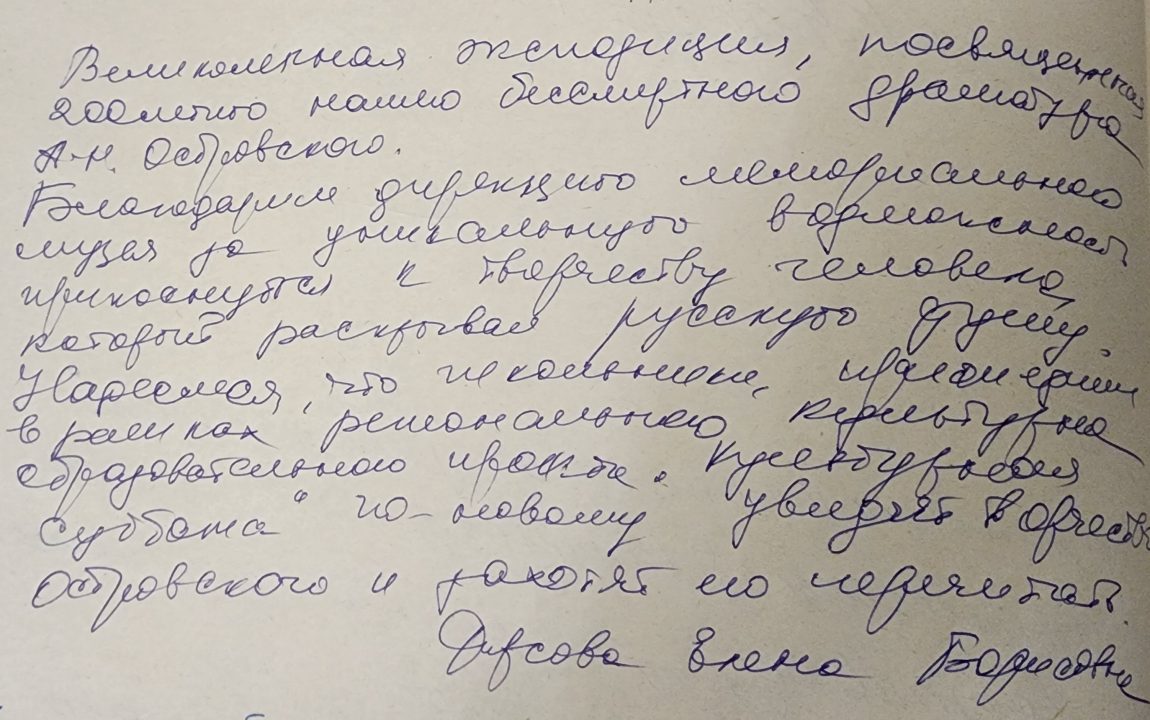 Великолепная экспозиция, посвященная
200летию нашего бессмертного драматурга
А.Н. Островского.
Благодарим дирекцию мемориального
музея за уникальную возможность
прикоснуться к творчеству человека,
который раскрывал русскую душу.
Надеемся, что школьники, пришедшие
в рамках регионального культурно
образовательного проекта "Культурная
суббота" по-новому увидят творчество
Островского и захотят его перечитать.
Елена Борисовна